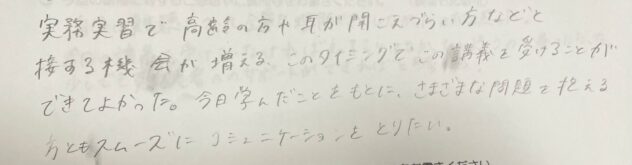 実務実習で高齢の方や耳が聞こえづらい方などと
接する機会が増える、このタイミングでこの講義を受けることが
できてよかった。今日学んだことをもとに、さまざまな問題を抱える
方ともスムーズにコミュニケーションをとりたい。